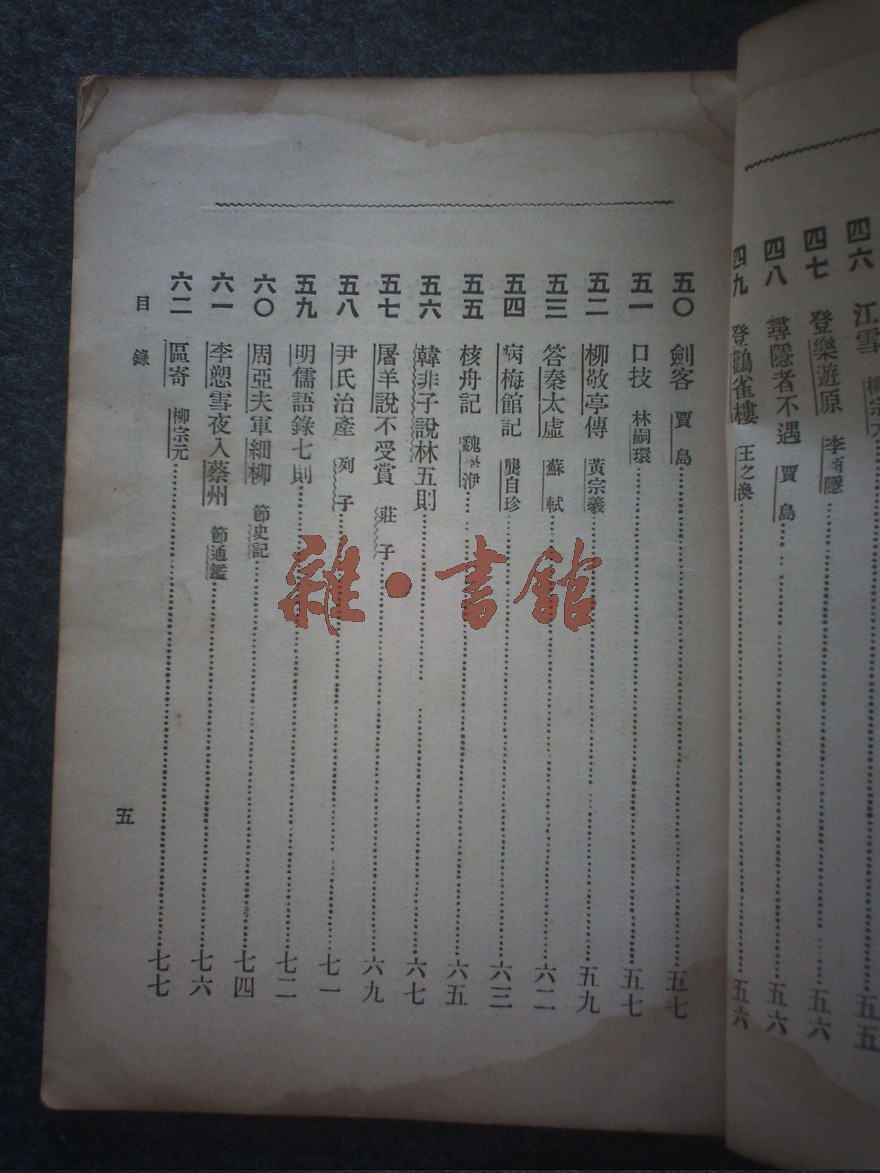 四六 江雪 柳宗元 五五
四七 登樂遊原 李商隱 五六
四八 尋隱者不遇 賈島 五六
四九 登鸛雀樓 王之渙 五六
五〇 劍客 賈島 五七
五一 口技 林嗣環 五七
五二 柳敬亭傳 黃宗羲 五九
五三 答秦太虛 蘇軾 六二
五四 病梅館記 龔自珍 六三
五五 核舟記 魏學洢 六五
五六 韓非子說林五則 六七
五七 屠羊說不受賞 莊子 六九
五八 尹氏治產 列子 七一
五九 明儒語錄七則 七二
六〇 周亞夫軍細柳 節史記 七四
六一 李愬雪夜入蔡州 節通鑑 七六
六二 區寄 柳宗元 七七
目錄
五
雜·書館